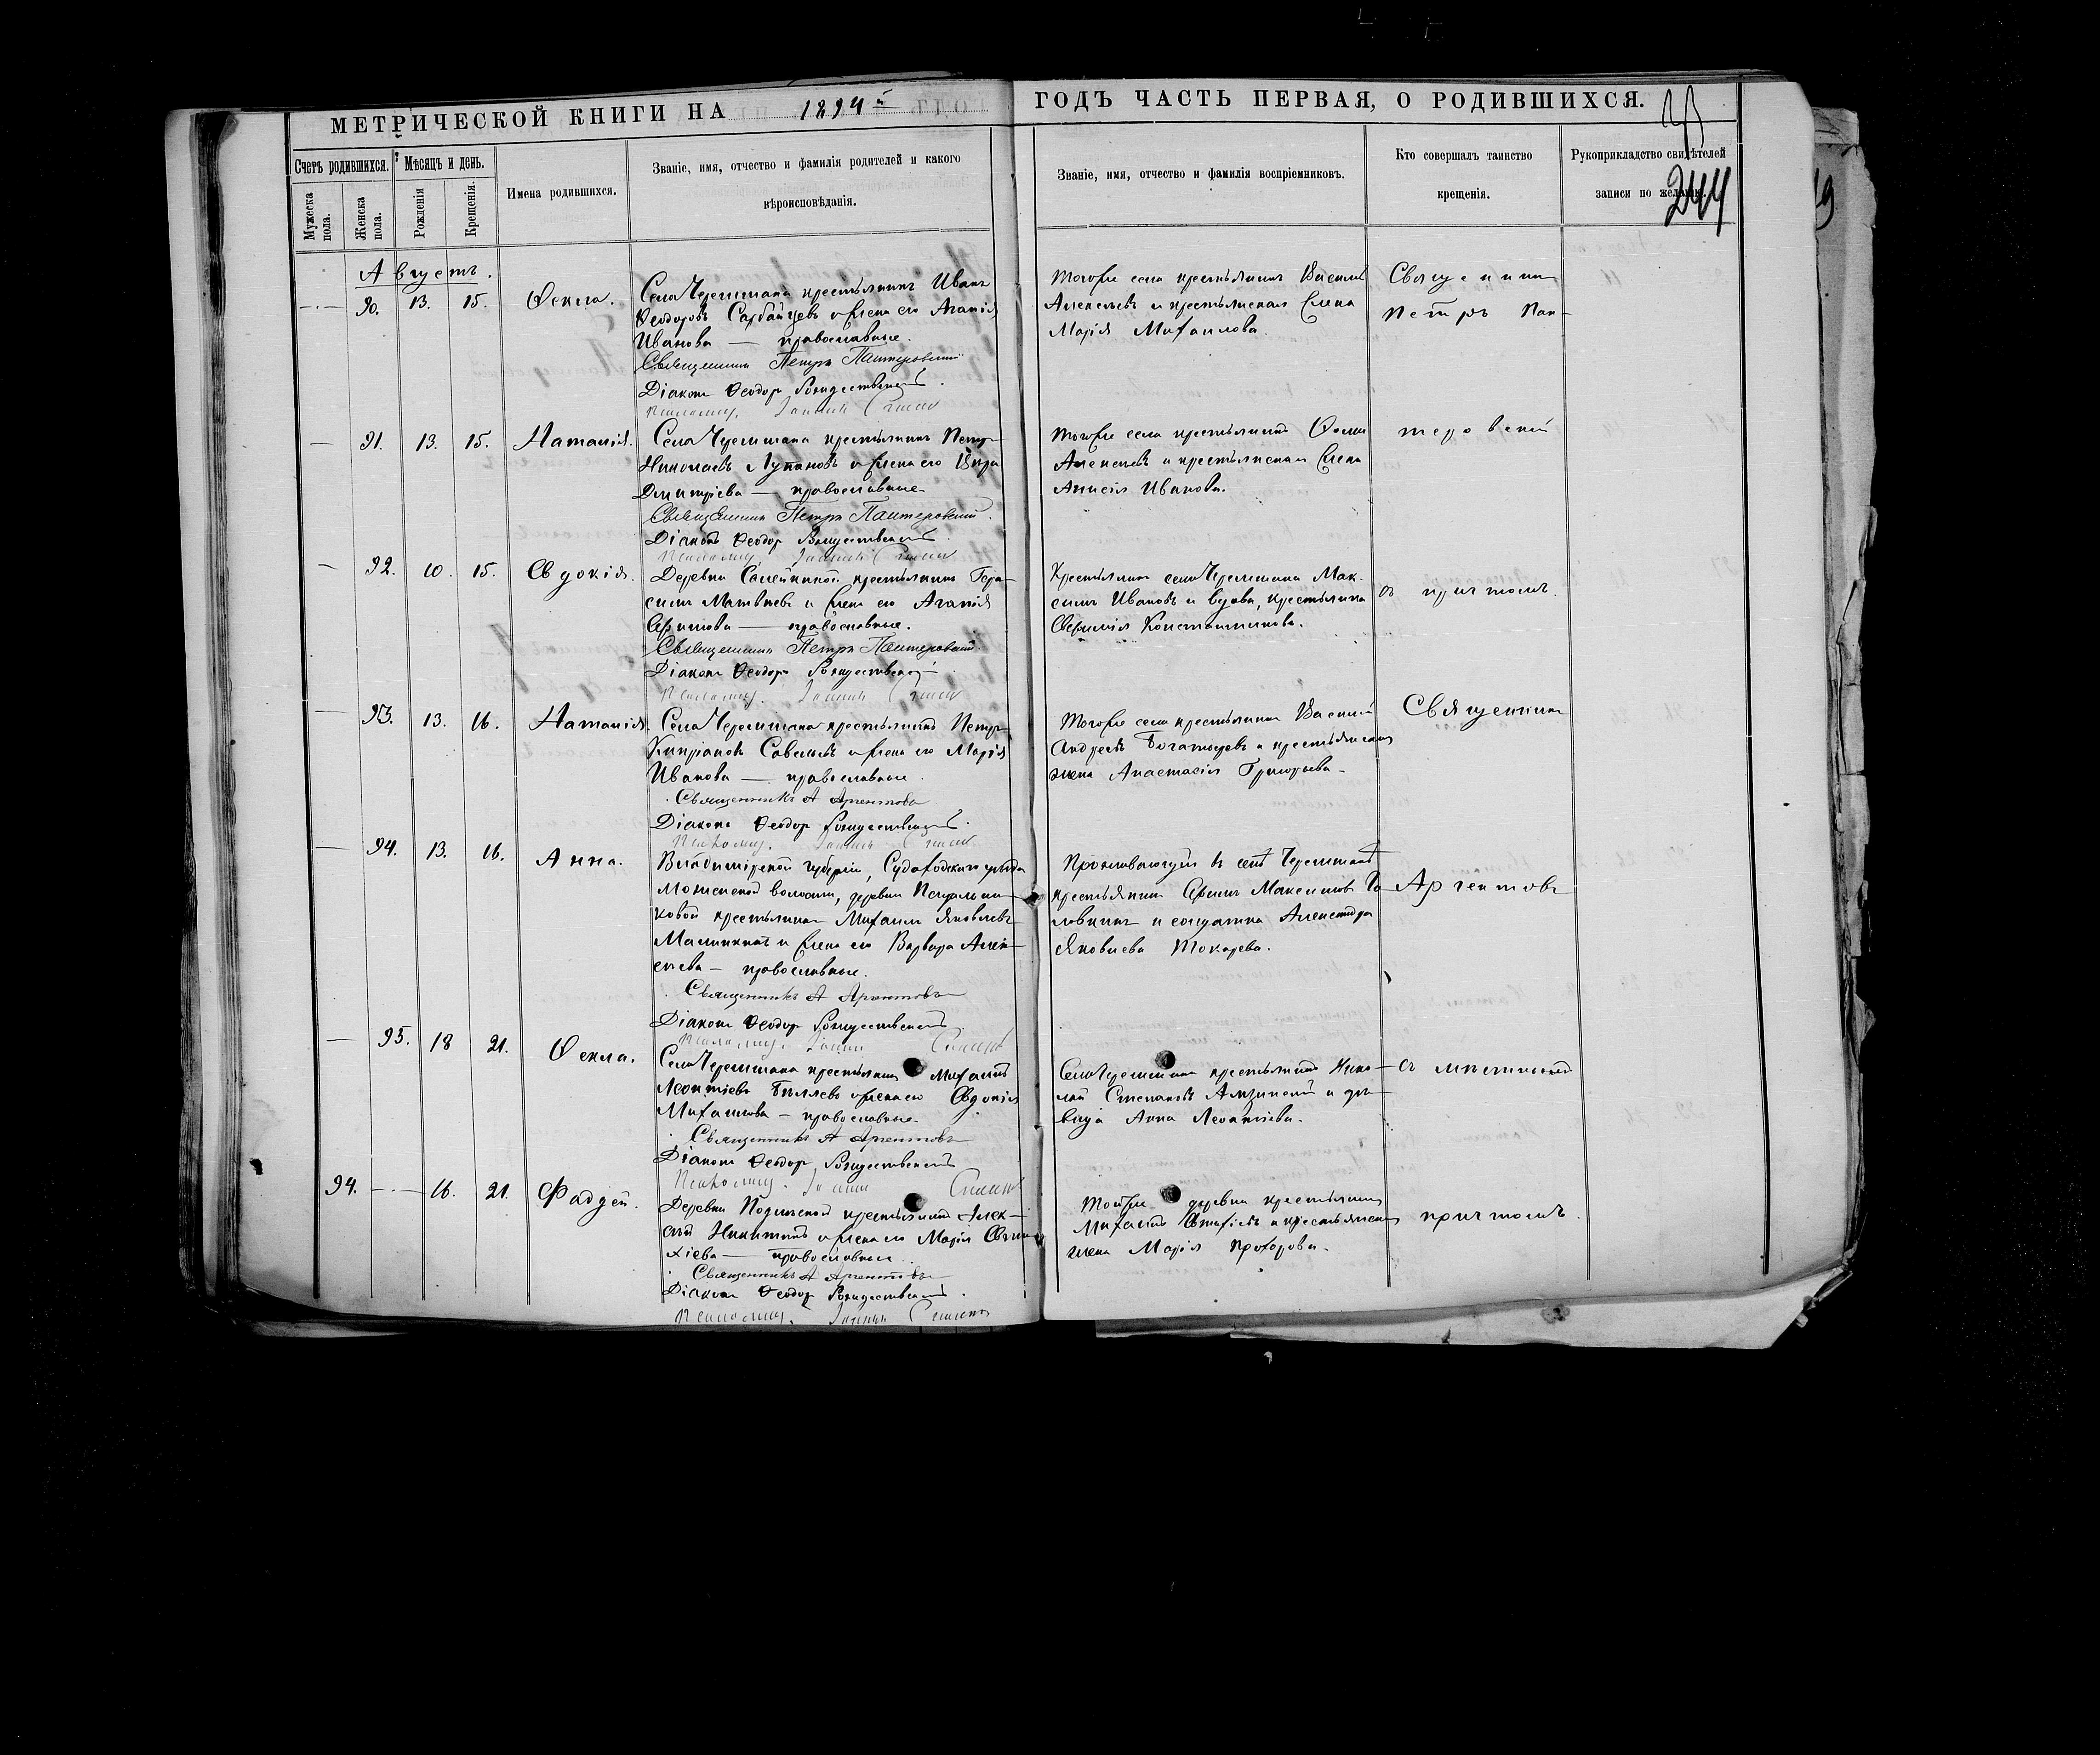 МЕТРИЧЕСКОЙ КНИГИ НА 1894й ГОДЪ ЧАСТЬ ПЕРВАЯ, О РОДИВШИХСЯ.
244
Счетъ родившихся.
Мѣсяцъ и день.
Мужеска пола.
Женска пола.
Рожденія
Крещенія.
Имена родившихся.
Званіе, имя, отчество и фамилія родителей и какого
вѣроисповѣданія.
Званіе, имя, отчество и фамилія воспріемниковъ.
Кто совершалъ таинство
крещенія.
Рукоприкладство свидѣтелей
записи по желанію.
Августъ.
90. 13. 15. Ѳекла.
Села Черемшана крестьянинъ Иванъ
Ѳеодоровъ Сарбайцевъ и жена его Агапія
Иванова — православные.
Священникъ Петръ Пантеровскій
Діаконъ Ѳеодоръ Рождественскій.
Псаломщ. Іоаннъ
Тогоже села крестьянинъ Василій
Алексѣевъ и крестьянская жена
Марія Михаилова.
Священникъ
Петръ Пан-
91. 13. 15. Наталія.
Села Черемшана крестьянинъ Петръ
Николаевъ Лупановъ и жена его Вѣра
Димитріева — православные
Священникъ Петръ Пантеровскій.
Діаконъ Ѳеодоръ Рождественскій.
Псаломщ. Іоаннъ
Тогоже села крестьянинъ Ѳома
Алексѣевъ и крестьянская жена
Анисія Иванова.
теровскій
92. 10. 15. Евдокія.
Деревни Самейкиной крестьянинъ Гера-
симъ Матвѣевъ и жена его Агапія
Ефимова — православные.
Священникъ Петръ Пантеровскій.
Діаконъ Ѳеодоръ Рождественскій
Псаломщ. Іоаннъ
Крестьянинъ села Черемшана Мак-
симъ Ивановъ и вдова, крестьянка
Евфимія Константинова.
съ причтомъ.
93. 13. 16. Наталія.
Села Черемшана крестьянинъ Петръ
Кипріановъ Савельевъ и жена его Марія
Иванова — православные.
Священникъ А Аргентовъ
Діаконъ Ѳеодоръ Рождественскій.
Псаломщ. Іоаннъ
Тогоже села крестьянинъ Василій
Андреевъ Богатыревъ и крестьянская
жена Анастасія Григорьева
Священникъ
94. 13. 16. Анна.
Владимірской губерніи, Судогодскаго уѣзда
волости, деревни
ковой крестьянинъ Михаилъ Яковлевъ
Малинкинъ и жена его Варвара Алек-
сѣева — православные.
Священникъ А Аргентовъ
Діаконъ Ѳеодоръ Рождественскій.
Псаломщ. Іоаннъ
Проживающій въ селѣ Черемшанѣ
крестьянинъ Ефимъ Максимовъ Го-
ловкинъ и солдатка Александра
Яковлева Токарева.
Аргентовъ
95. 18 21. Ѳекла.
Села Черемшана крестьянинъ Михаилъ
Леонтіевъ Бѣляевъ и жена его Евдокія
Михаилова — православные
Священникъ А Аргентовъ
Діаконъ Ѳеодоръ Рождественскій
Псаломщ. Іоаннъ
Села Черемшана крестьянинъ Нико-
лай Степановъ и дѣ-
вица Анна Леонтіева.
съ мѣстнымъ
94. 16. 21. Фаддей.
Деревни крестьянинъ Алек-
сѣй Никитинъ и жена его Марія Евти-
хіева — православные
Священникъ А Аргентовъ
Діаконъ Ѳеодоръ Рождественскій.
Псаломщ. Іоаннъ
Тойже деревни крестьянинъ
Михаилъ Евтихіевъ и крестьянская
жена Марія Прохорова.
причтомъ.